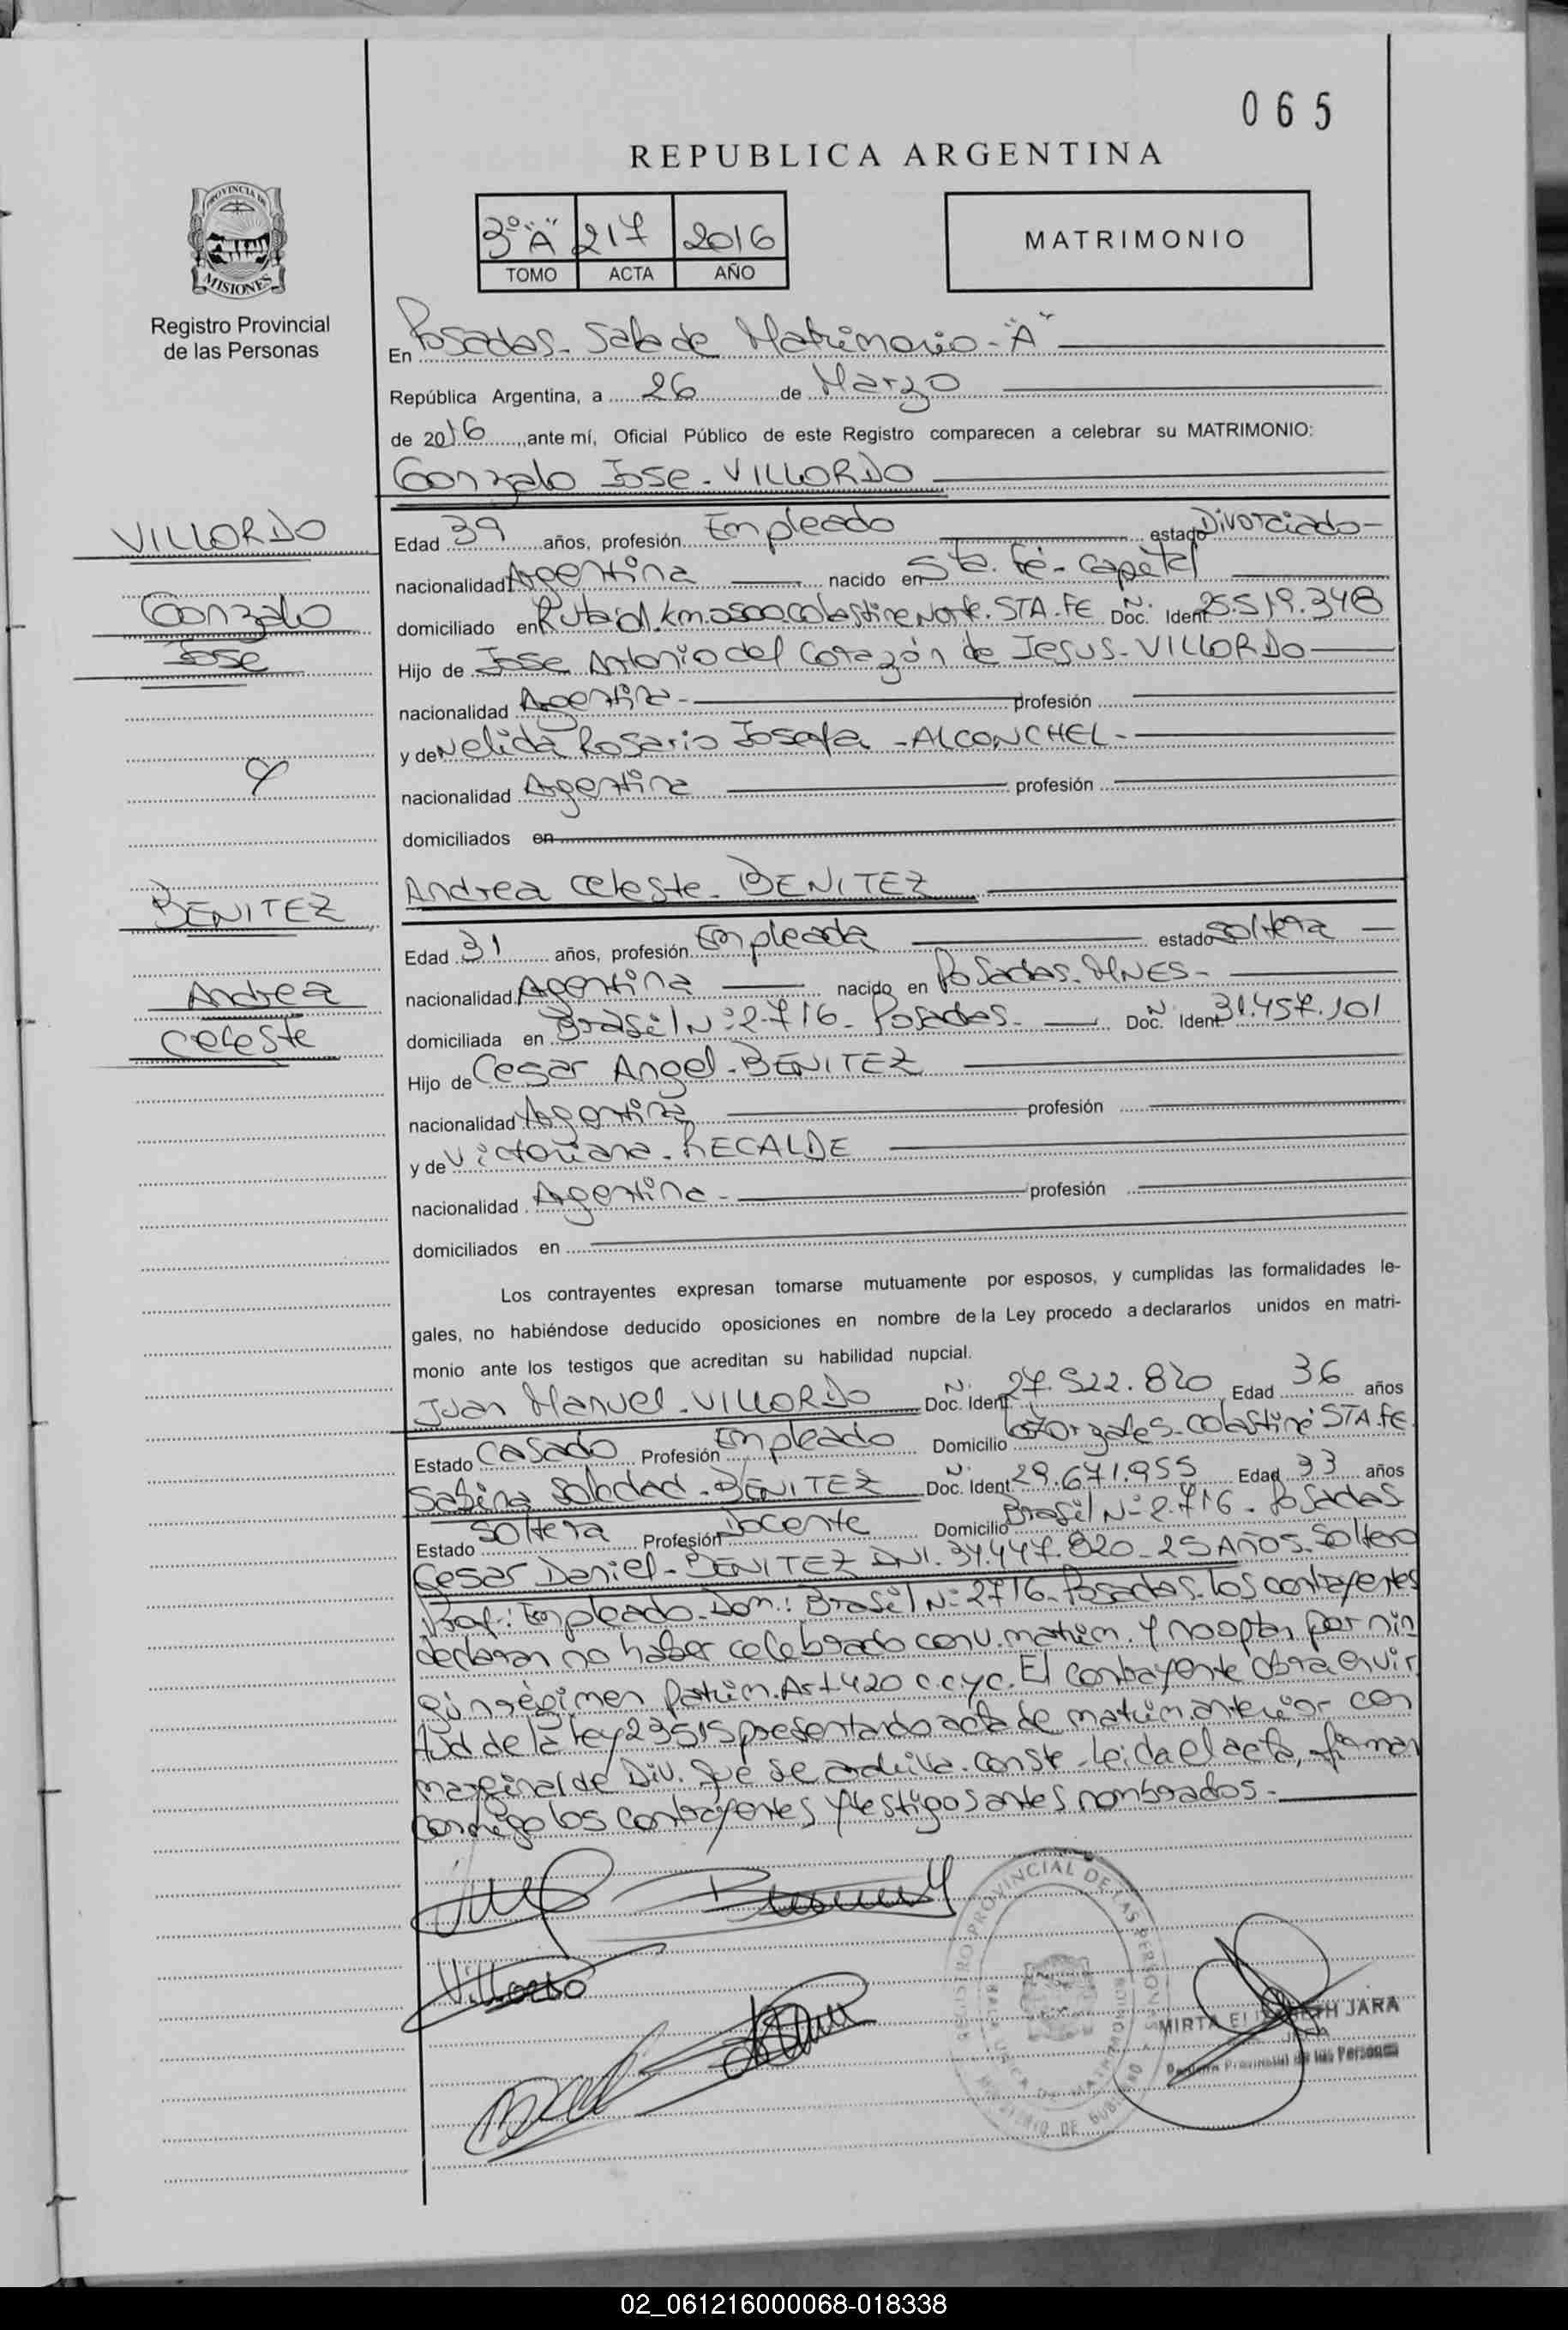 065
REPUBLICA ARGENTINA
3º "A" 217 2016
TOMO ACTA AÑO
MATRIMONIO
PROVINCIA DE
MISIONES
Registro Provincial
de las Personas
En Posadas - Sala de Matrimonio - "A"
República Argentina, a 26 de Marzo
de 2016, ante mí, Oficial Público de este Registro comparecen a celebrar su MATRIMONIO:
Gonzalo Jose - VILLORDO
VILLORDO
Gonzalo
Jose
Edad 39 años, profesión Empleado estado Divorciado -
nacionalidad Argentina nacido en Sta. Fé - Capital
domiciliado en Ruta Km 0500 Colastine Norte. STA. FE Doc. Nº Ident. 25.519.348
Hijo de Jose Antonio del Corazón de Jesus - VILLORDO
nacionalidad Argentina - profesión
y de Nelida Rosario Josefa - ALCONCHEL -
y
nacionalidad Argentina profesión
domiciliados en
Andrea Celeste - BENITEZ
BENITEZ
Andrea
Celeste
Edad 31 años, profesión Empleada estado Soltera -
nacionalidad Argentina nacido en Posadas - MNES -
domiciliada en Brasil Nº 2716 - Posadas - Doc. Nº Ident. 31.457.101
Hijo de Cesar Angel - BENITEZ
nacionalidad Argentina profesión
y de Victoriana - RECALDE
nacionalidad Argentina - profesión
domiciliados en
Los contrayentes expresan tomarse mutuamente por esposos, y cumplidas las formalidades le-
gales, no habiéndose deducido oposiciones en nombre de la Ley procedo a declararlos unidos en matri-
monio ante los testigos que acreditan su habilidad nupcial.
Juan Manuel - VILLORDO Doc. Nº Ident. 27.522.820 Edad 36 años
Estado Casado Profesión Empleado Domicilio Zorzales - Colastiné STA. FE.
Sabina Soledad - BENITEZ Doc. Nº Ident. 29.671.955 Edad 33 años
Estado Soltera Profesión Docente Domicilio Brasil Nº 2716 - Posadas
Cesar Daniel - BENITEZ DNI. 34.447.820 - 25 AÑOS - Soltero
Prof.: Empleado - Dom.: Brasil Nº 2716 - Posadas - Los contrayentes
declaran no haber celebrado conv. matrim. y no optan por nin
gún régimen patrim. Art 420 c.c.y.c. El contrayente obra en vir
tud de la Ley 23515 presentando acta de matrim anterior con
marginal de Div. que se archiva. Conste - Leida el acta, firman
conmigo los contrayentes y testigos antes nombrados -
Villordo
REGISTRO PROVINCIAL DE LAS PERSONAS
MINISTERIO DE GOBIERNO
MIRTA ELIZABETH JARA
Registro Provincial de las Personas
02_061216000068-018338